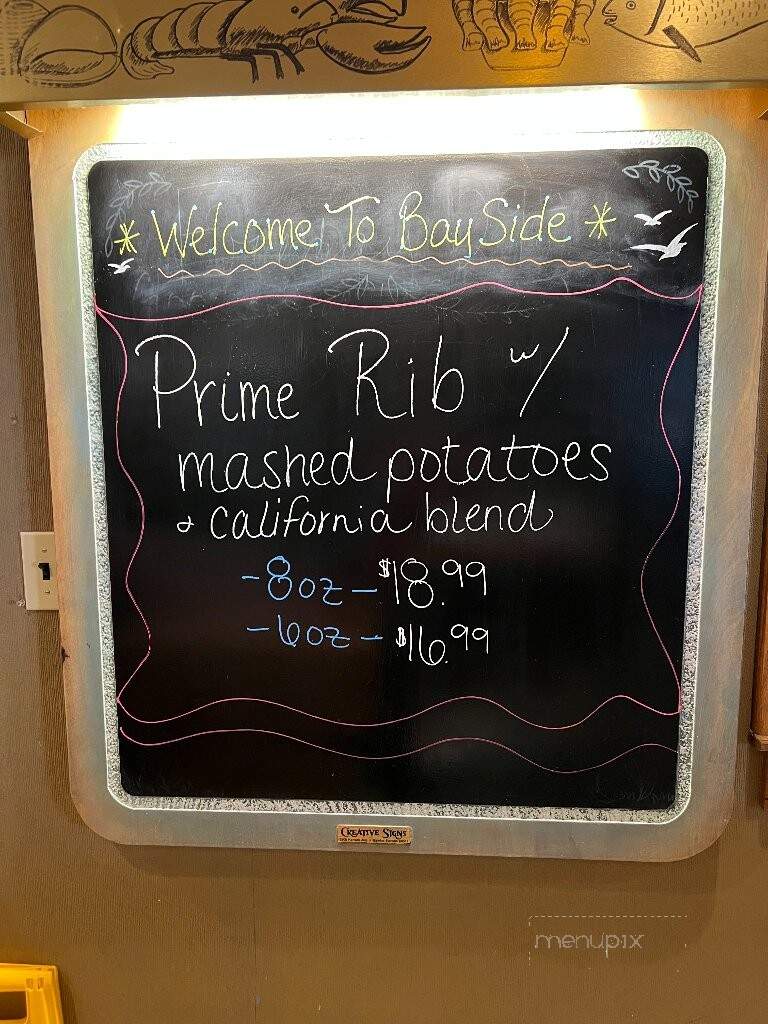 * Welcome To BaySide *
Prime Rib w/
mashed potatoes
& california blend
- 8oz - $18.99
- 6oz - $16.99
Creative Signs
menupix